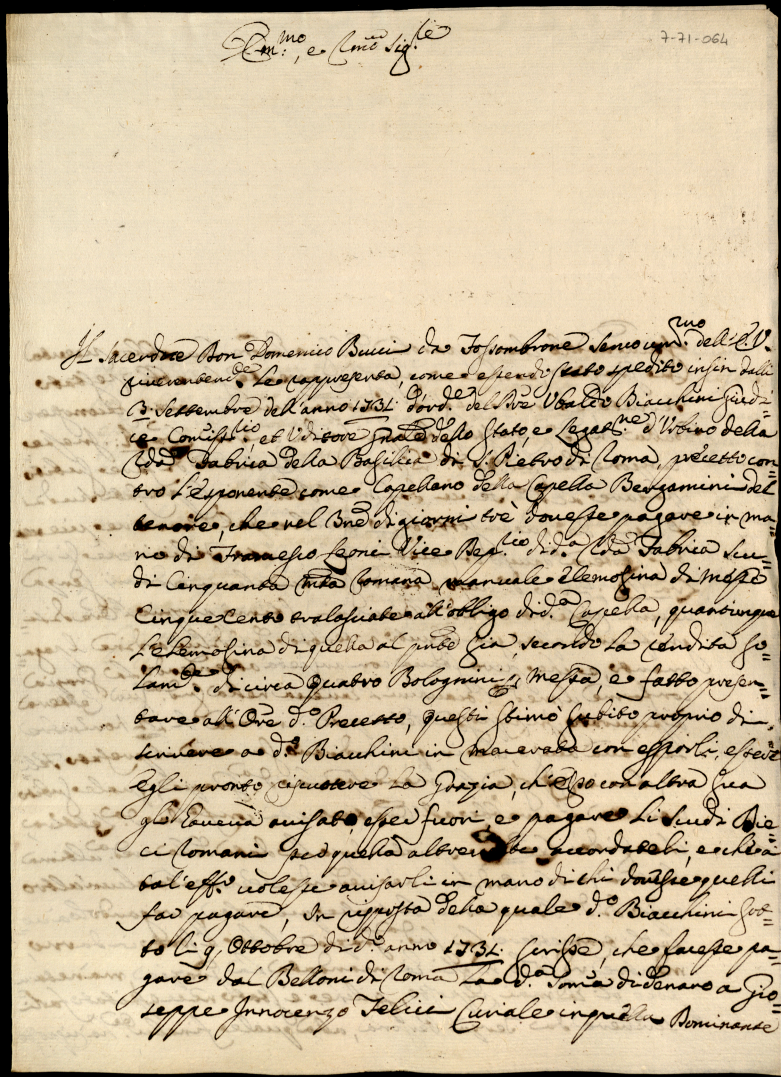 7-71-064
Em.mo, e Rmo Sig.re
Il Sacerdote Don Domenico Bucci da Fossombrone Servo um.mo dell'E.V.
riverentem.e Le rappresenta, come essendo stato spedito insin dalli
3 Settembre dell'anno 1731 d'ord.e del Prē Ubaldo Biacchini Giudi=
ce Comiss.rio, et Uditore Gnāle dello Stato, e Legaz.ne d'Urbino della
Rda Fabrica della Basilica di S. Pietro di Roma precetto con=
tro l'esponente come Capellano della Capella Bergamini del
tenore, che nel Tne di giorni trè dovesse pagare in ma=
no di Francesco Leoni Vice Dep.rio di d.a Rda Fabrica Scu=
di Cinquanta mta Romana manuale elemosina di Messe
Cinquecento tralasciate all'obligo di d.a Capella, quantunque
l'elemosina di quella al pnte sia, secondo la rendita So=
lam.e di circa quatro Bolognini p Messa, e fatto presen=
tare all'Ore d.o Precetto, questi stimò subito proprio di
scrivere a d.o Biacchini in Macerata con esporli, essere
egli pronto riscuotere la Grazia, ch'esso con altra sua
gl'aveva avisato, esser fuori, e pagare li Scudi Die=
ci Romani per quella altre accordateli, e che a
tal'eff.o volesse avisarli in mano di chi dovesse quelli
far pagare, In risposta della quale d.o Biacchini sot=
to li 9 Ottobre di d.o anno 1731 scrisse, che facesse pa=
gare dal Belloni di Roma la d.a Soma di denaro a Gio=
seppe Innocenzo Felici Curiale in quella Dominante